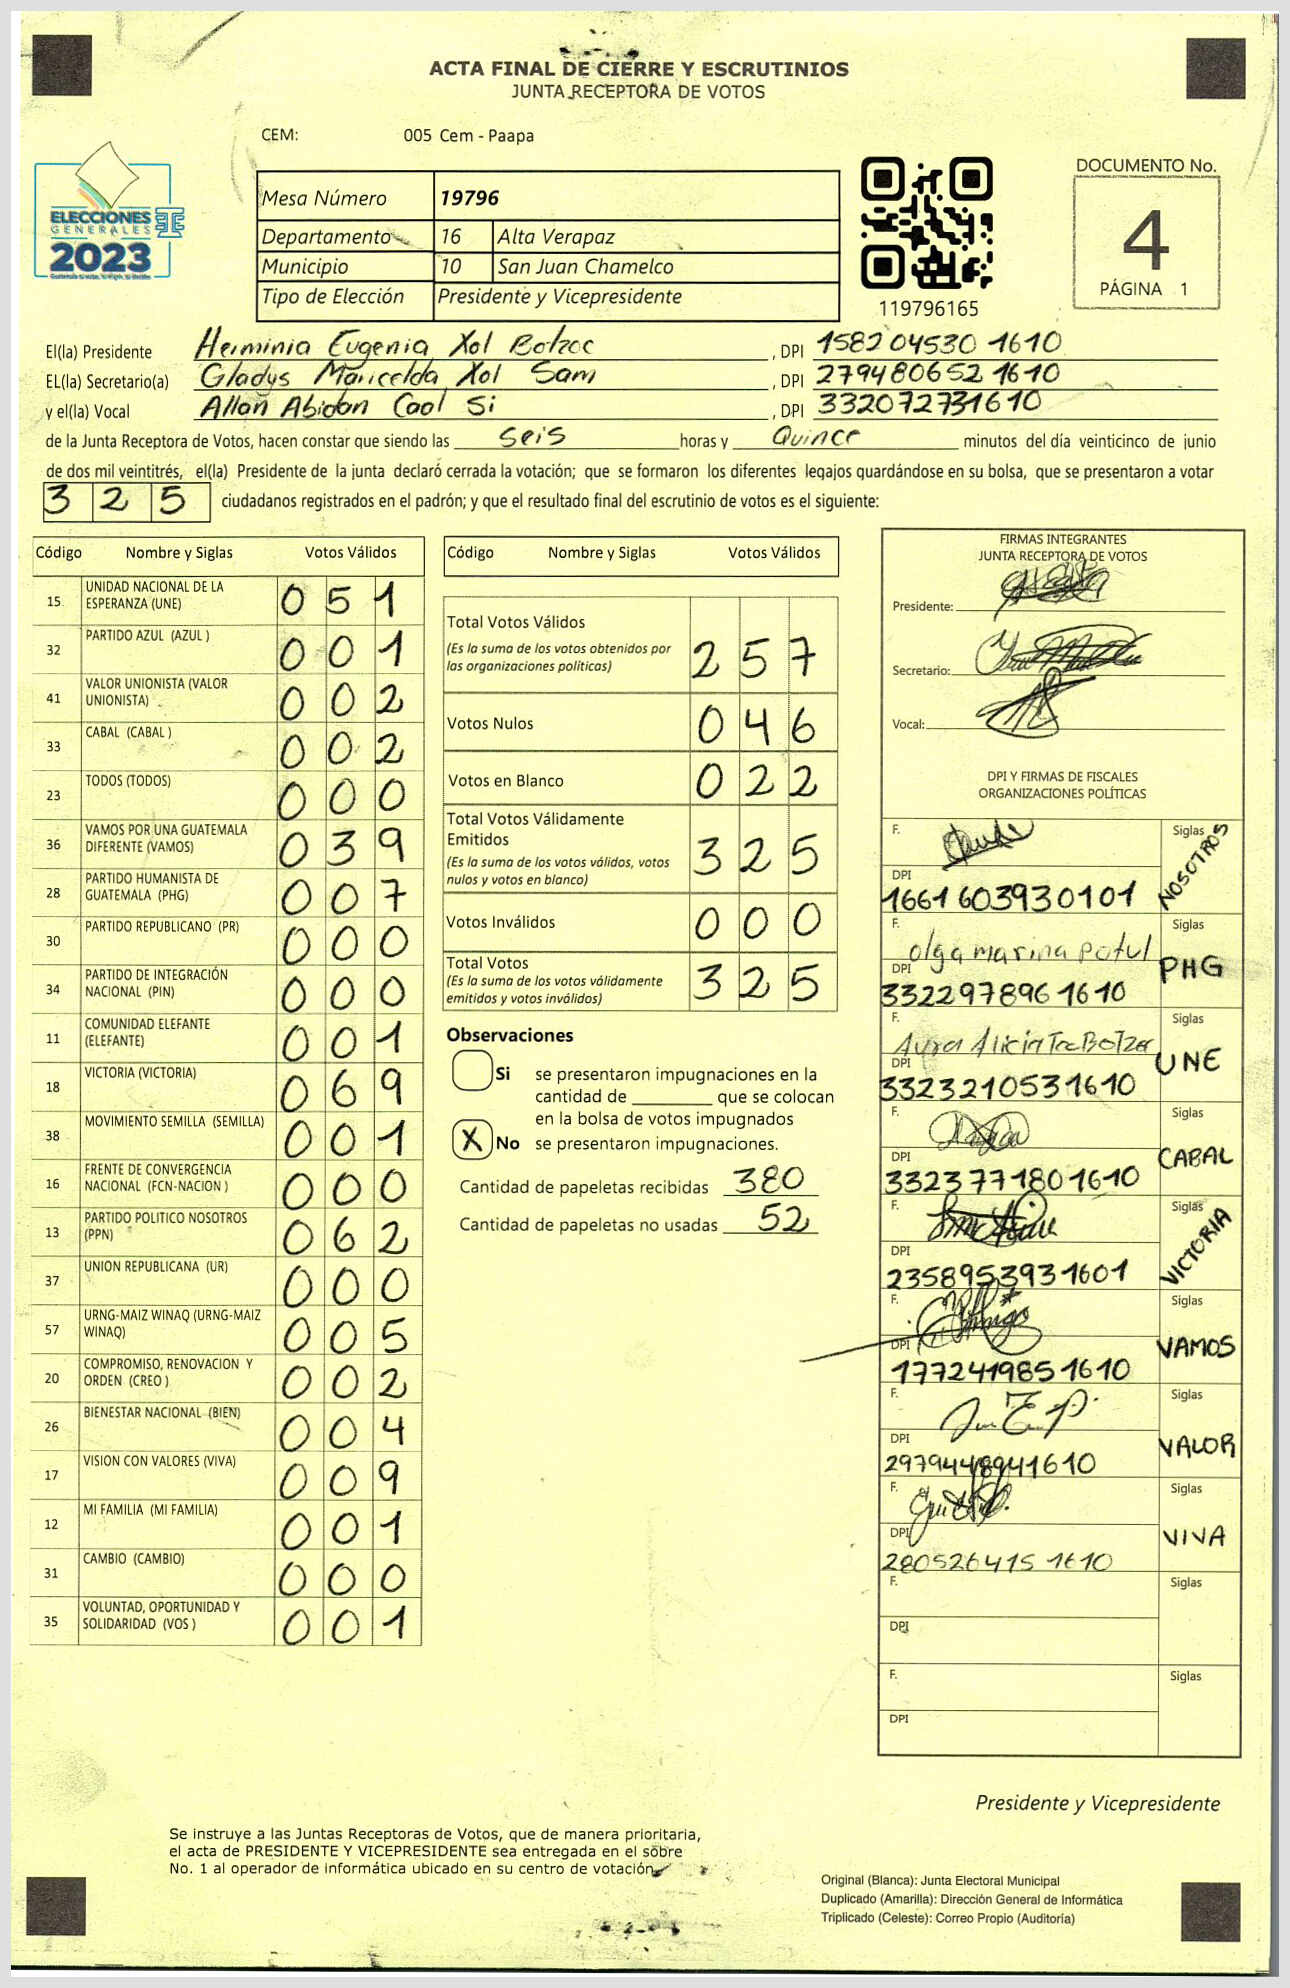 ACTA FINAL DE CIERRE Y ESCRUTINIOS
JUNTA RECEPTORA DE VOTOS
CEM: 005 Cem - Paapa
ELECCIONES
GENERALES
2023
Mesa Número 19796
Departamento 16 Alta Verapaz
Municipio 10 San Juan Chamelco
Tipo de Elección Presidente y Vicepresidente
119796165
DOCUMENTO No.
4
PÁGINA 1
El(la) Presidente Herminia Eugenia Xol Botzoc , DPI 158204530 1610
EL(la) Secretario(a) Gladys Maricelda Xol Sam , DPI 279480652 1610
y el(la) Vocal Allan Abidan Caal Si , DPI 3320727731610
de la Junta Receptora de Votos, hacen constar que siendo las seis horas y Quince minutos del día veinticinco de junio
de dos mil veintitrés, el(la) Presidente de la junta declaró cerrada la votación; que se formaron los diferentes legajos quardándose en su bolsa, que se presentaron a votar
325 ciudadanos registrados en el padrón; y que el resultado final del escrutinio de votos es el siguiente:
Código Nombre y Siglas Votos Válidos
15 UNIDAD NACIONAL DE LA ESPERANZA (UNE) 051
32 PARTIDO AZUL (AZUL ) 001
41 VALOR UNIONISTA (VALOR UNIONISTA) 002
33 CABAL (CABAL ) 002
23 TODOS (TODOS) 000
36 VAMOS POR UNA GUATEMALA DIFERENTE (VAMOS) 039
28 PARTIDO HUMANISTA DE GUATEMALA (PHG) 007
30 PARTIDO REPUBLICANO (PR) 000
34 PARTIDO DE INTEGRACIÓN NACIONAL (PIN) 000
11 COMUNIDAD ELEFANTE (ELEFANTE) 001
18 VICTORIA (VICTORIA) 069
38 MOVIMIENTO SEMILLA (SEMILLA) 001
16 FRENTE DE CONVERGENCIA NACIONAL (FCN-NACION ) 000
13 PARTIDO POLITICO NOSOTROS (PPN) 062
37 UNION REPUBLICANA (UR) 000
57 URNG-MAIZ WINAQ (URNG-MAIZ WINAQ) 005
20 COMPROMISO, RENOVACION Y ORDEN (CREO ) 002
26 BIENESTAR NACIONAL (BIEN) 004
17 VISION CON VALORES (VIVA) 009
12 MI FAMILIA (MI FAMILIA) 001
31 CAMBIO (CAMBIO) 000
35 VOLUNTAD, OPORTUNIDAD Y SOLIDARIDAD (VOS ) 001
Código Nombre y Siglas Votos Válidos
Total Votos Válidos
(Es la suma de los votos obtenidos por
las organizaciones políticas) 257
Votos Nulos 046
Votos en Blanco 022
Total Votos Válidamente
Emitidos
(Es la suma de los votos válidos, votos
nulos y votos en blanco) 325
Votos Inválidos 000
Total Votos
(Es la suma de los votos válidamente
emitidos y votos inválidos) 325
Observaciones
Si se presentaron impugnaciones en la
cantidad de ________ que se colocan
en la bolsa de votos impugnados
X No se presentaron impugnaciones.
Cantidad de papeletas recibidas 380
Cantidad de papeletas no usadas 52
FIRMAS INTEGRANTES
JUNTA RECEPTORA DE VOTOS
Presidente:
Secretario:
Vocal:
DPI Y FIRMAS DE FISCALES
ORGANIZACIONES POLÍTICAS
F. Siglas NOSOTROS
DPI
1661603930101
F. olga marina potul Siglas PHG
DPI
3322978961610
F. Aura Alicia Siglas UNE
DPI
3323210531610
F. Siglas CABAL
DPI
3323771801610
F. Siglas VICTORIA
DPI
2358953931601
F. Siglas VAMOS
DPI
1772419851610
F. Siglas VALOR
DPI
2979448941610
F. Siglas VIVA
DPI
280526415 1610
F. Siglas
DPI
F. Siglas
DPI
Presidente y Vicepresidente
Se instruye a las Juntas Receptoras de Votos, que de manera prioritaria,
el acta de PRESIDENTE Y VICEPRESIDENTE sea entregada en el sobre
No. 1 al operador de informática ubicado en su centro de votación.
Original (Blanca): Junta Electoral Municipal
Duplicado (Amarilla): Dirección General de Informática
Triplicado (Celeste): Correo Propio (Auditoría)